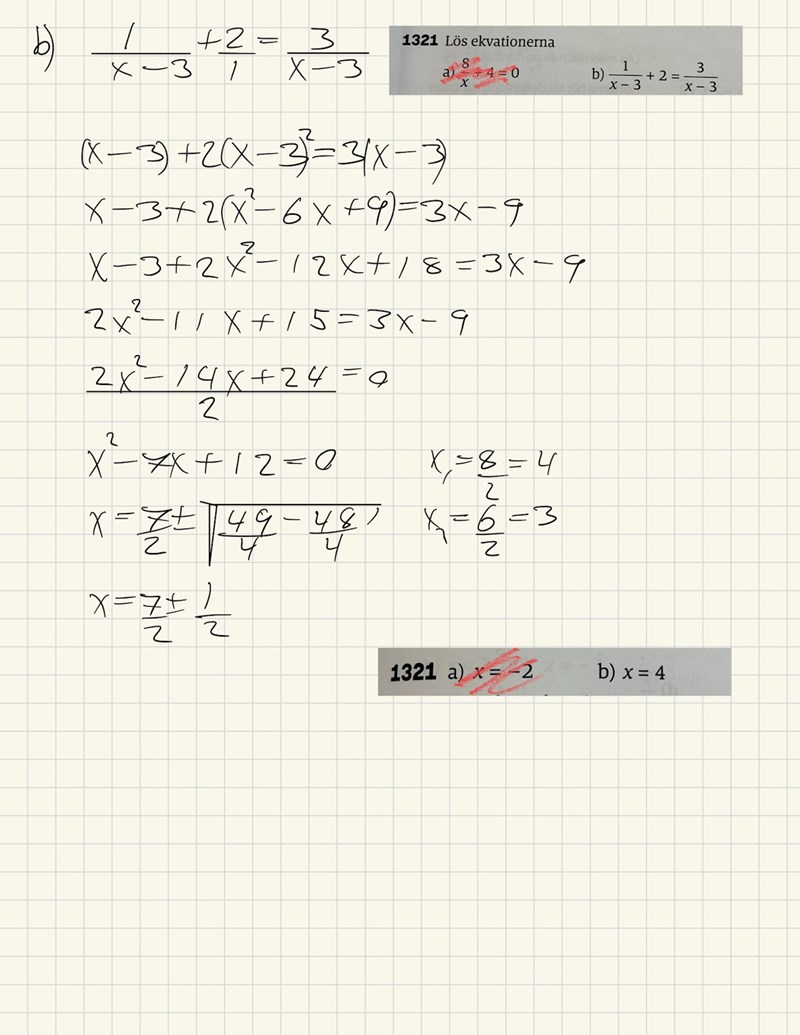 b) 1/(x-3) + 2/1 = 3/(x-3)
1321 Lös ekvationerna
a) 8/x + 4 = 0 b) 1/(x-3) + 2 = 3/(x-3)
(x-3)+2(x-3)²=3(x-3)
x-3+2(x²-6x+9)=3x-9
x-3+2x²-12x+18=3x-9
2x²-11x+15=3x-9
(2x²-14x+24)/2 = 0
x²-7x+12=0
x₁=8/2=4
x=7/2±√(49/4-48/4)
x₂=6/2=3
x=7/2±1/2
1321 a) x = -2 b) x = 4